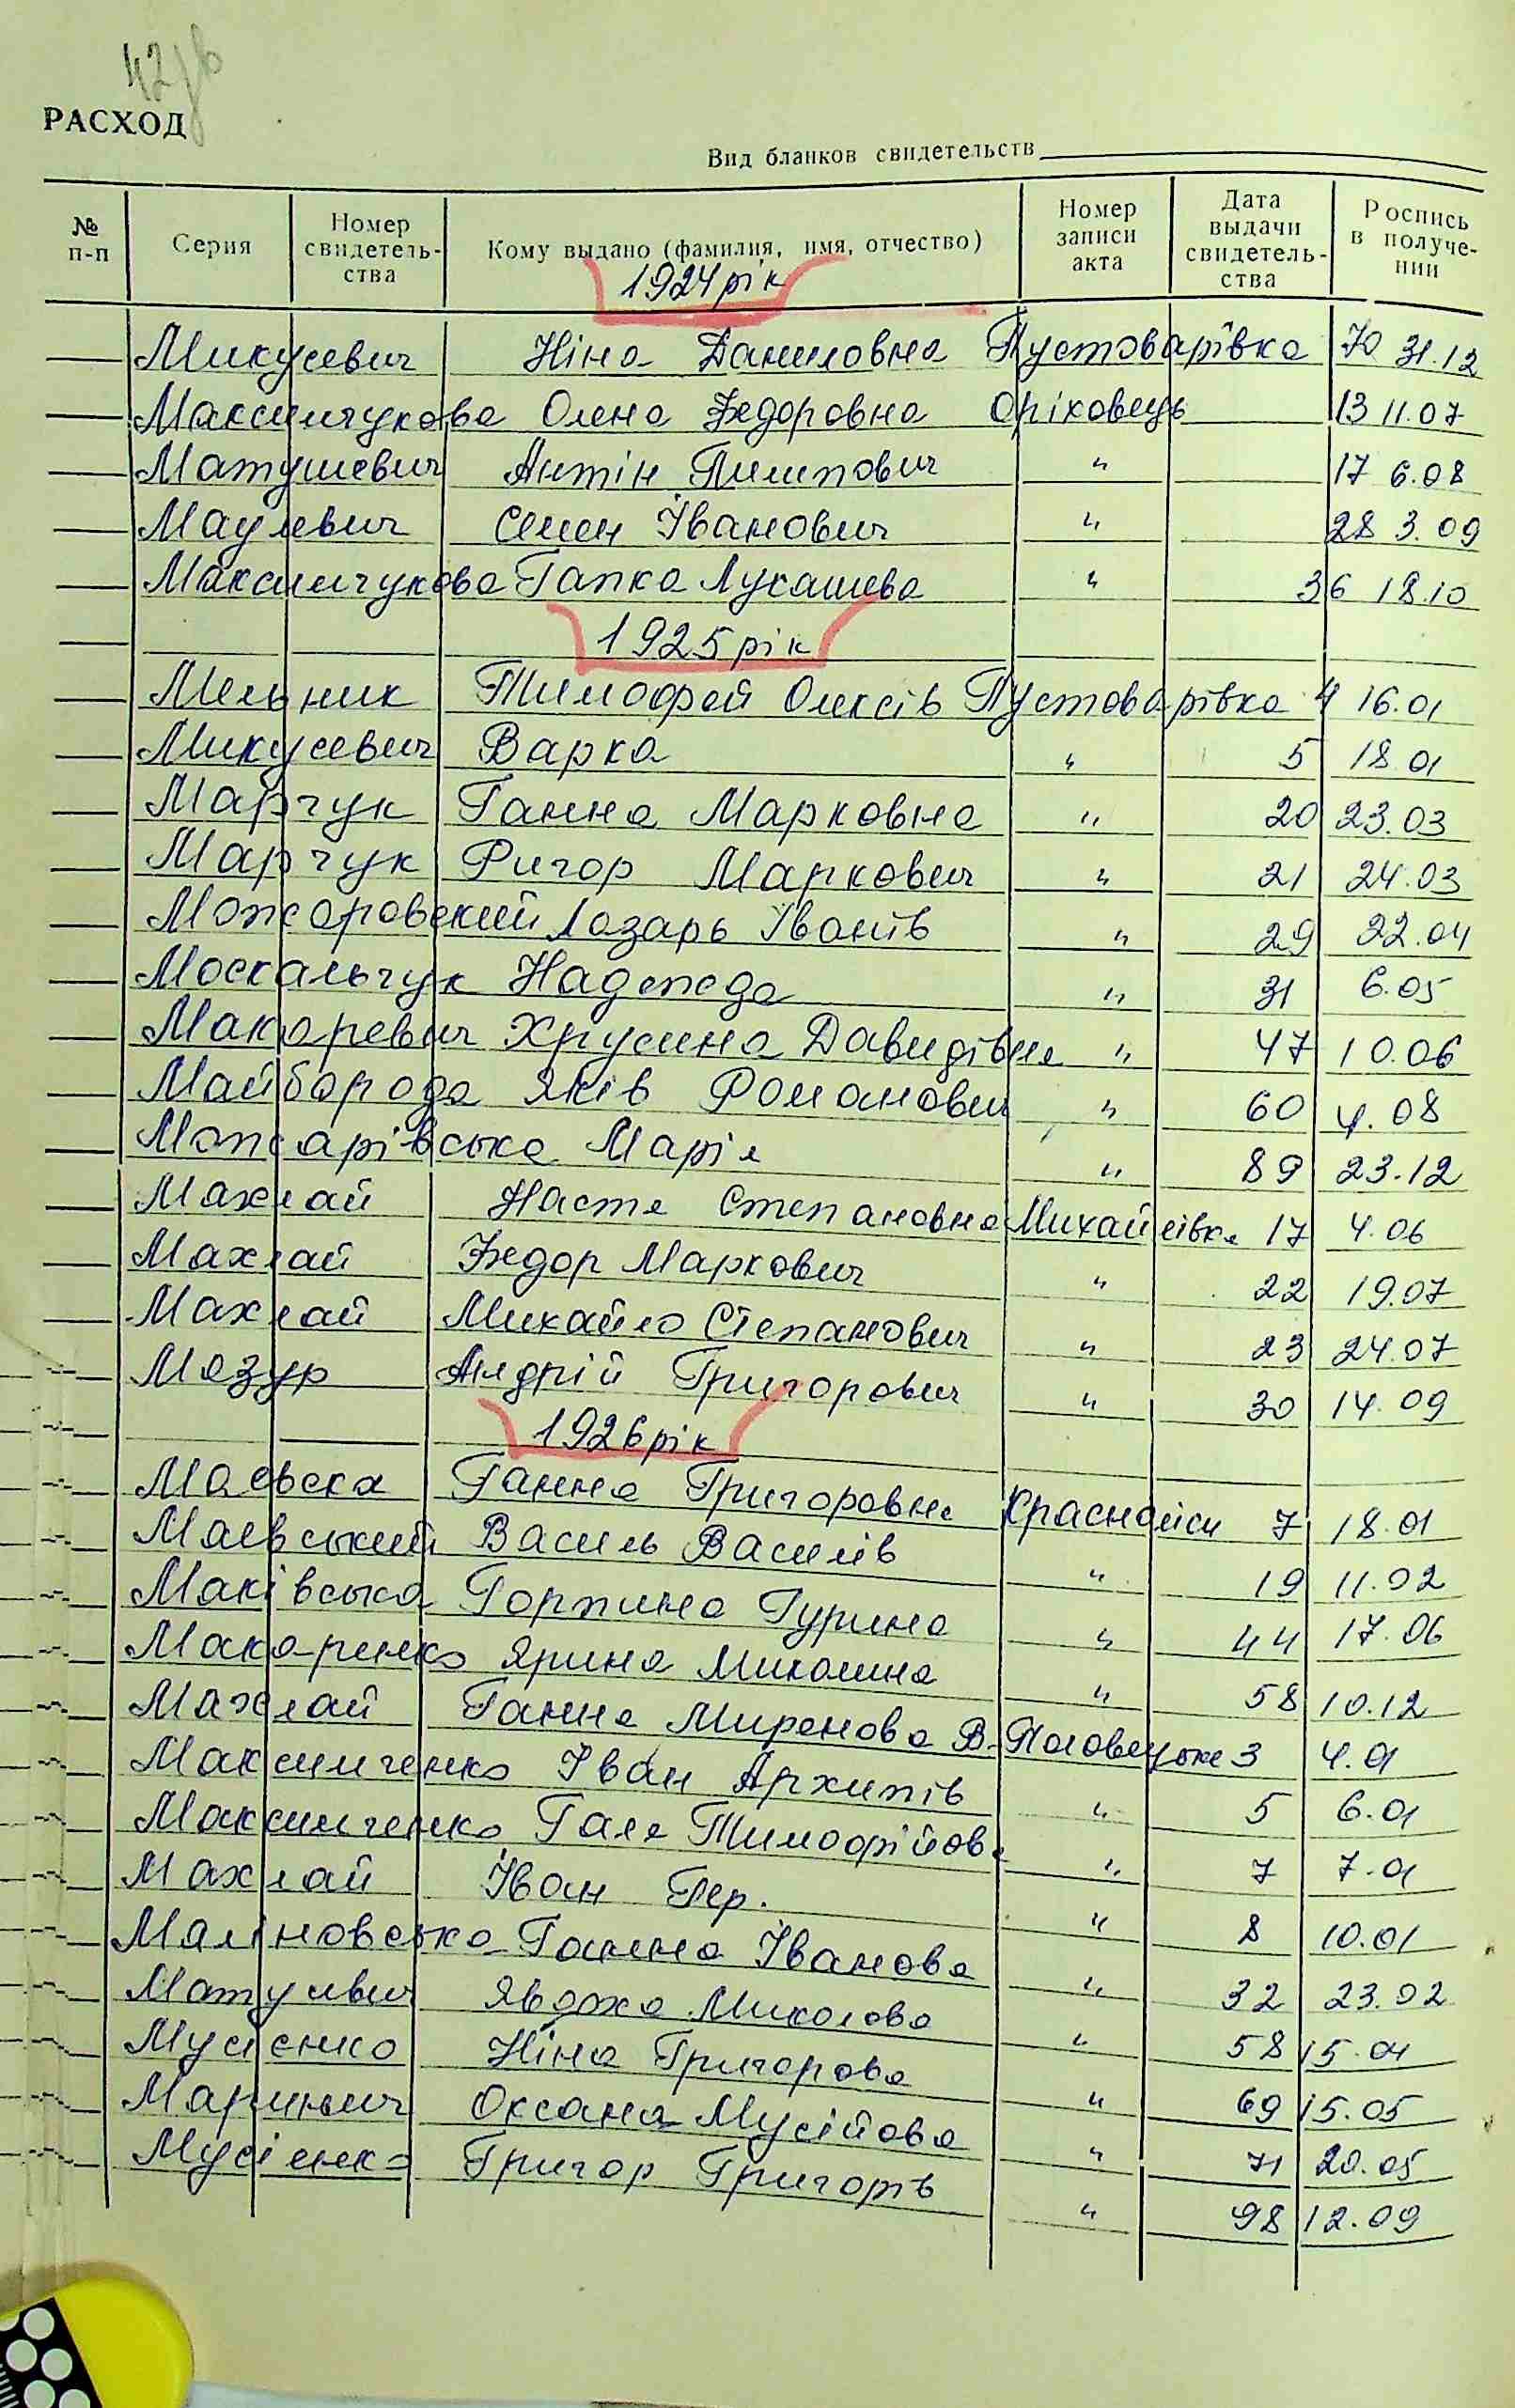 42/в
РАСХОД
Вид бланков свидетельств
№ п-п Серия Номер свидетель-ства Кому выдано (фамилия, имя, отчество) Номер записи акта Дата выдачи свидетель-ства Роспись в получе-нии
1924 рік
Микусевич Ніна Даниловна Пустоварівка 70 31.12
Максимчукова Олена Федоровна Оріховець 13 11.07
Матушевич Антін Пилипович " 17 6.08
Мациевич Семен Іванович " 28 3.09
Максимчукова Гапка Лукашева " 36 18.10
1925 рік
Мельник Тимофей Олексів Пустоварівка 4 16.01
Микусевич Варка " 5 18.01
Марчук Ганна Марковна " 20 23.03
Марчук Ригор Маркович " 21 24.03
Можаровский Лазарь Іванів " 29 22.04
Москальчук Надежда " 31 6.05
Макаревич Хрусина Давидівна " 47 10.06
Майборода Яків Романович " 60 4.08
Можарівська Марія " 89 23.12
Махлай Настя Степановна Михайлівка 17 4.06
Махлай Федор Маркович " 22 19.07
Махлай Михайло Степанович " 23 24.07
Мазур Андрій Григорович " 30 14.09
1926 рік
Маевска Ганна Григоровна Красноліси 7 18.01
Маевський Василь Василів " 19 11.02
Маківська Горпина Гурина " 44 17.06
Макаренко Ярина Миколина " 58 10.12
Махлай Ганна Миронова В-Половецьке 3 4.01
Максимченко Іван Архипів " 5 6.01
Максимченко Галя Тимофійова " 7 7.01
Махлай Іван Гер. " 8 10.01
Маліновська Ганна Іванова " 32 23.02
Явдоха Миколова " 58 15.04
Мусієнко Ніна Григорова " 69 15.05
Маринич Оксана Мусійова " 71 20.05
Мусієнко Григор Григорів " 98 12.09